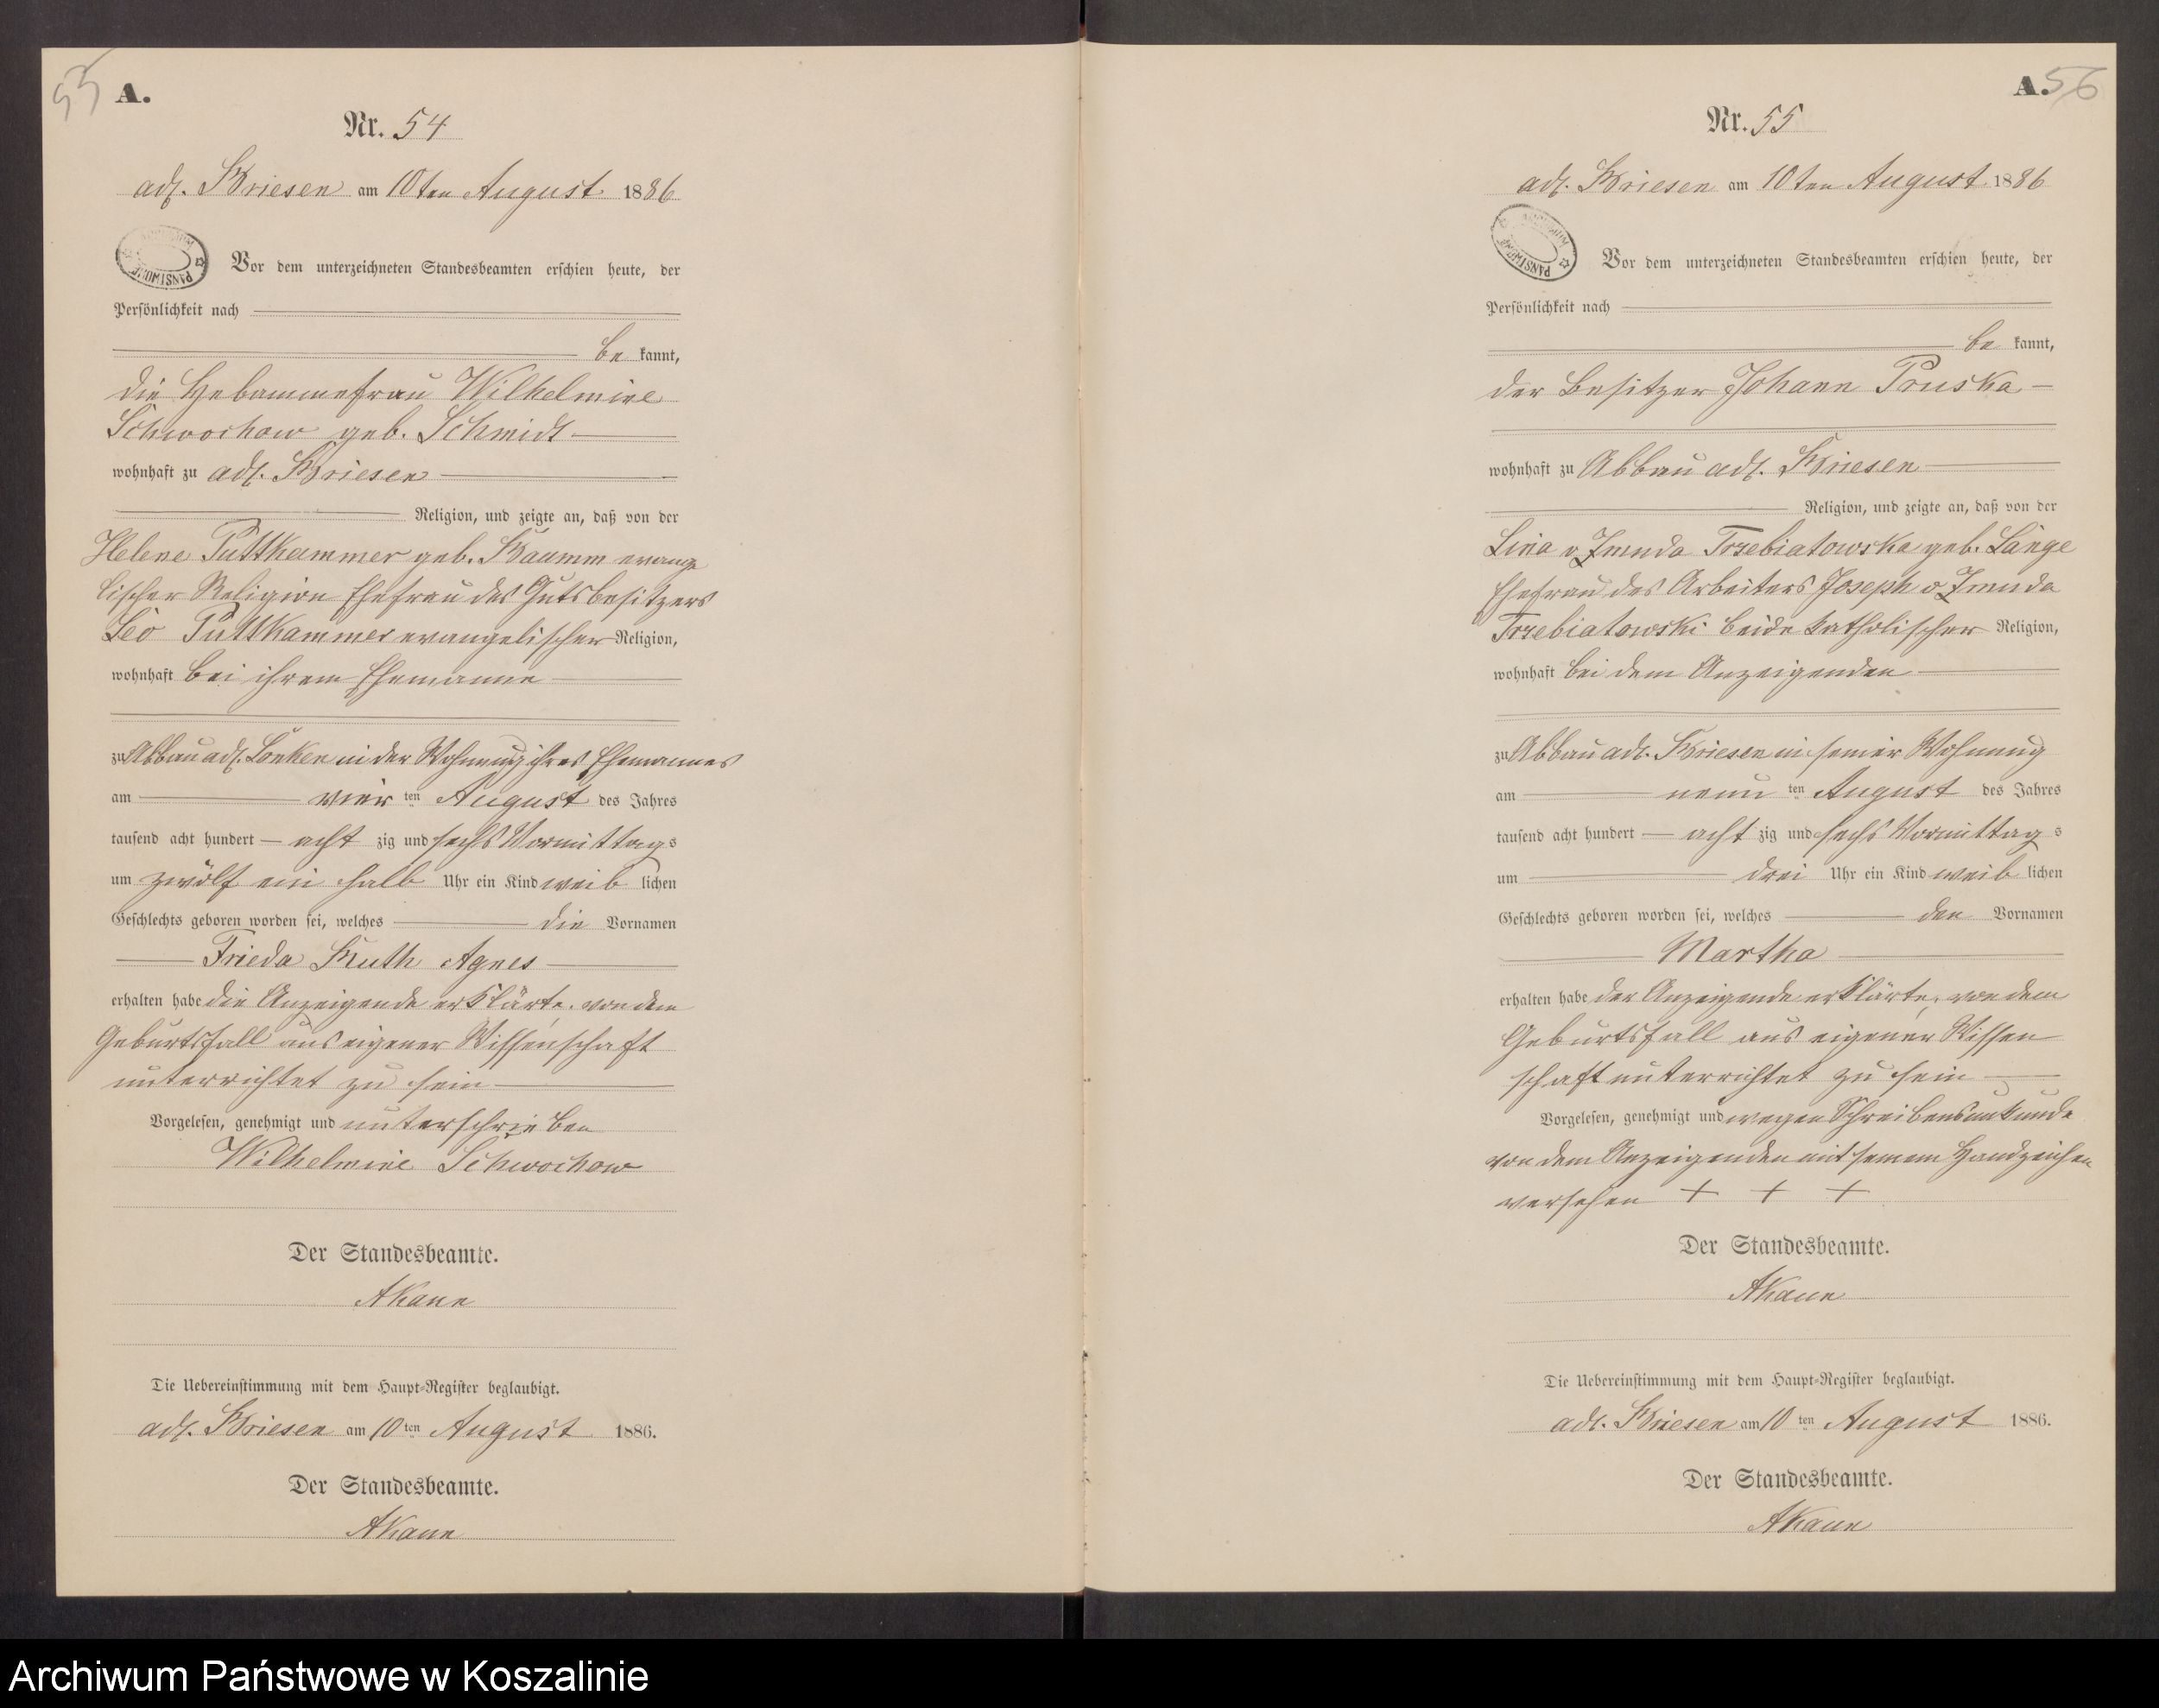 55
A.
Nr. 54
adl. Briesen am 10ten August 1886
Vor dem unterzeichneten Standesbeamten erschien heute, der
Persönlichkeit nach
be kannt,
die Hebammefrau Wilhelmine
Schwochow geb. Schmidt
wohnhaft zu adl. Briesen
Religion, und zeigte an, daß von der
Helene Puttkammer geb. Baumm evange
lischer Religion Ehefrau des Gutsbesitzers
Leo Puttkammer evangelischer Religion,
wohnhaft bei ihrem Ehemanne
zu Abbau adl. Lonken in der Wohnung ihres Ehemannes
am vier ten August des Jahres
tausend acht hundert acht zig und sechs Vormittags
um zwölf ein halb Uhr ein Kind weib lichen
Geschlechts geboren worden sei, welches die Vornamen
Frieda Ruth Agnes
erhalten habe die Anzeigende erklärte, von dem
Geburtsfall aus eigener Wissenschaft
unterrichtet zu sein
Vorgelesen, genehmigt und unterschrieben
Wilhelmine Schwochow
Der Standesbeamte.
AKann
Die Uebereinstimmung mit dem Haupt-Register beglaubigt.
adl. Briesen am 10 ten August 1886.
Der Standesbeamte.
AKann
A. 56
Nr. 55
adl. Briesen am 10ten August 1886
Vor dem unterzeichneten Standesbeamten erschien heute, der
Persönlichkeit nach
be kannt,
der Besitzer Johann Pruska
wohnhaft zu Abbau adl. Briesen
Religion, und zeigte an, daß von der
Lina v Zmuda Trzebiatowska geb. Lange
Ehefrau des Arbeiters Joseph v Zmuda
Trzebiatowski beide katholischer Religion,
wohnhaft bei dem Anzeigenden
zu Abbau adl. Briesen in seiner Wohnung
am neun ten August des Jahres
tausend acht hundert acht zig und sechs Vormittag s
um drei Uhr ein Kind weib lichen
Geschlechts geboren worden sei, welches den Vornamen
Martha
erhalten habe der Anzeigende erklärte, von dem
Geburtsfall aus eigener Wissen
schaft unterrichtet zu sein
Vorgelesen, genehmigt und wegen Schreibensunkunde
von dem Anzeigenden mit seinem Handzeichen
versehen + + +
Der Standesbeamte.
AKann
Die Uebereinstimmung mit dem Haupt-Register beglaubigt.
adl. Briesen am 10 ten August 1886.
Der Standesbeamte.
AKann
Archiwum Państwowe w Koszalinie